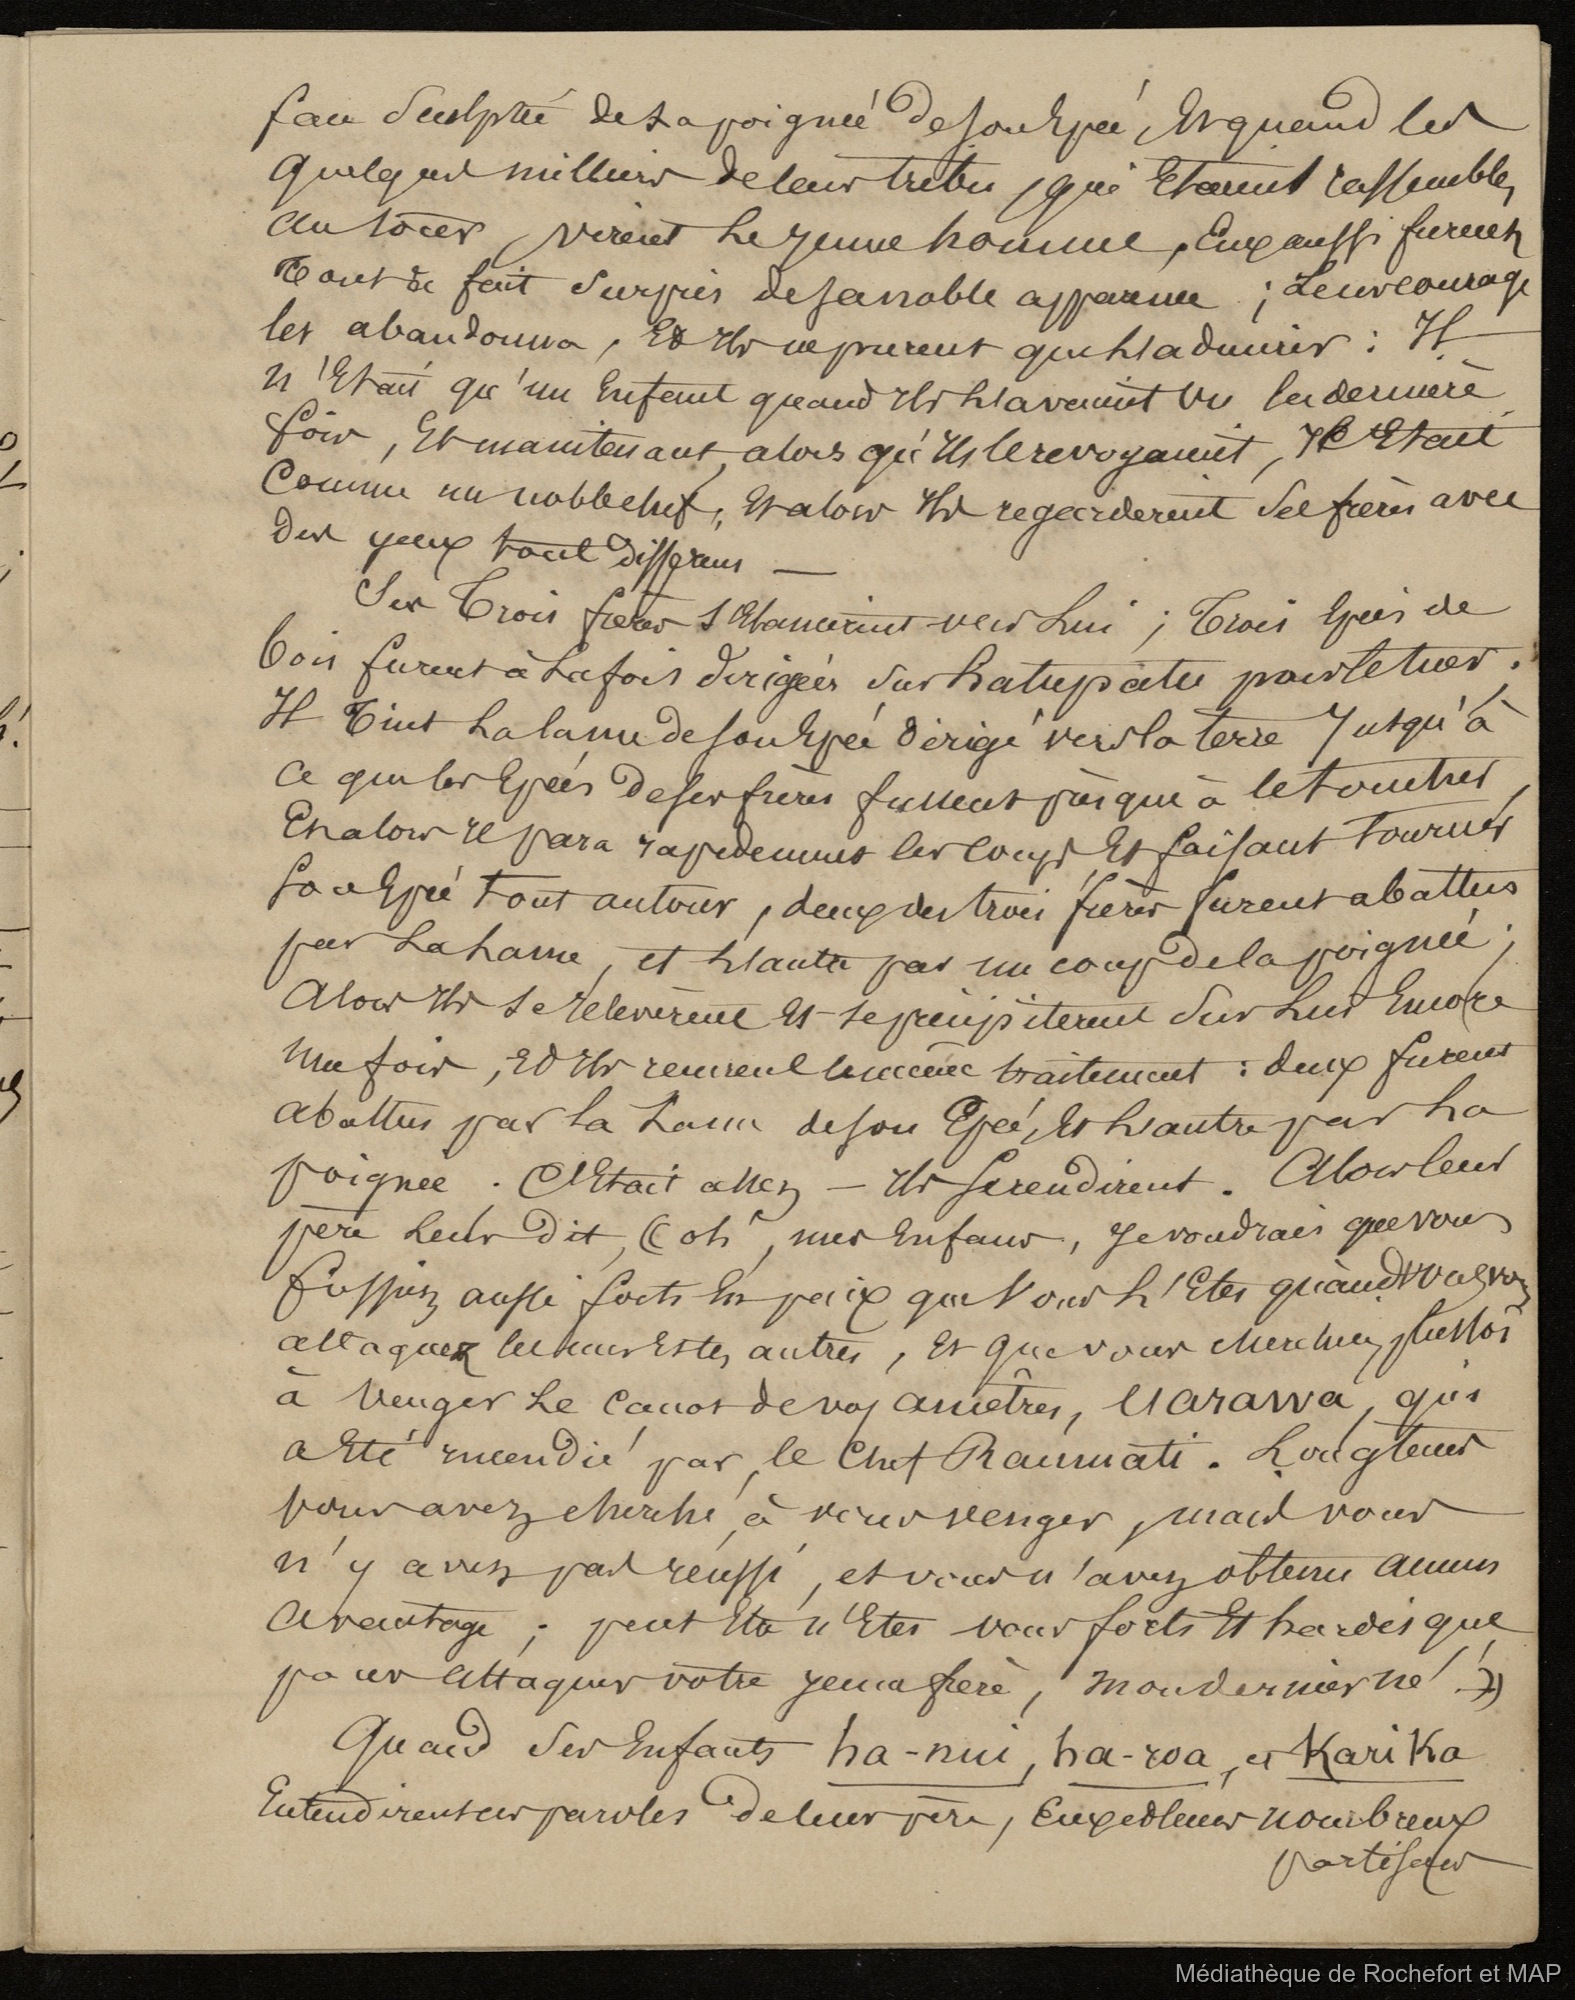 face sculptée de sa poignée de son Epée, Et quand les
quelques milliers de leur tribu, qui Etaient rassemblés
autour, virent le jeune homme, Eux aussi furent
Tout de fait surpris de sa noble apparence ; Leur courage
les abandonna, Et Ils ne purent que l'admirer : Il
n'Etait qu'un Enfant quand Ils l'avaient vu la dernière
fois, Et maintenant, alors qu'Ils le revoyaient, Il Etait
Comme un noble chef, Et alors Ils regardèrent ses frères avec
des yeux tout différens —
Ses Trois frères s'Elancèrent vers Lui ; Trois Epées de
bois furent à la fois dirigées sur hatupatu pour le tuer.
Il Tint La lame de son Epée dirigé vers la terre Jusqu'à
ce que les Epées de ses frères fussent presque à le toucher,
Et alors Il para rapidement les coups, Et faisant tourner
son Epée tout autour, deux des trois frères furent abattus
par La Lame, et l'autre par un coup de la poignée ;
Alors Ils se relevèrent Et se précipitèrent sur Lui Encore
une fois, Et Ils reçurent le même traitement : deux furent
abattus par la Lame de son Epée, Et l'autre par La
poignée. C'Etait assez — Ils se rendirent. Alors leur
père Leur dit, (( oh, mes Enfans, Je voudrais que vous
fussiez aussi forts En paix que Vous l'Etes quand vous vous
attaquez les uns Et les autres, Et que vous cherchiez plustôt
à venger Le Canot de vos ancêtres, Uarawa, qui
a Eté incendié par le Chef Raumati. Longtems
vous avez cherché à vous venger, mais vous
n'y avez pas réussi, et vous n'avez obtenu aucun
avantage ; peut Etre n'Etes vous forts Et hardis que
pour attaquer votre jeune frère, mon dernier né ! ))
Quand ses Enfants ha-nui, ha-roa, et KariKa
Entendirent ces paroles de leur père, Eux et leurs nombreux
partisans
Médiathèque de Rochefort et MAP